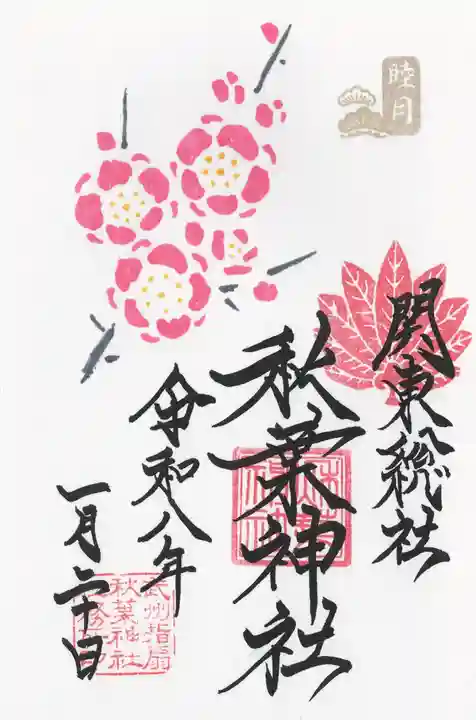 睦月
関東総社
秋葉神社
令和八年
一月二十日
武州指扇
秋葉神社
社務所印